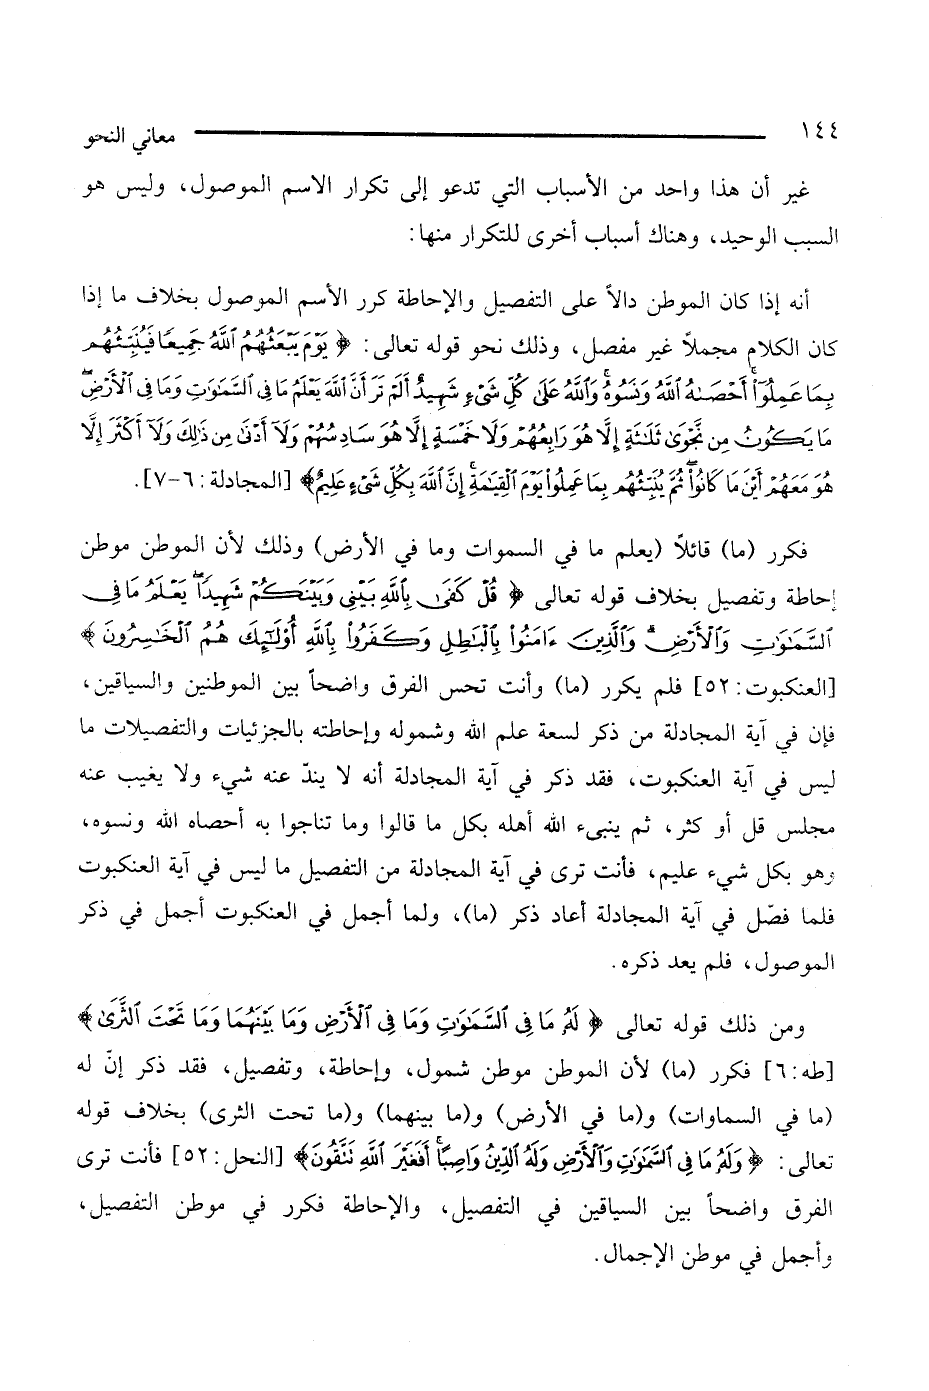 ١٤٤ معاني النحو
غير أن هذا واحد من الأسباب التي تدعو إلى تكرار الاسم الموصول، وليس هو
السبب الوحيد، وهناك أسباب أخرى للتكرار منها:
أنه إذا كان الموطن دالاً على التفصيل والإحاطة كرر الأسم الموصول بخلاف ما إذا
كان الكلام مجملاً غير مفصل، وذلك نحو قوله تعالى: ﴿ يَوْمَ يَبْعَثُهُمُ ٱللَّهُ جَمِيعًا فَيُنَبِّئُهُم
بِمَا عَمِلُوٓا۟ ۚ أَحْصَىٰهُ ٱللَّهُ وَنَسُوهُ ۚ وَٱللَّهُ عَلَىٰ كُلِّ شَىْءٍ شَهِيدٌ أَلَمْ تَرَ أَنَّ ٱللَّهَ يَعْلَمُ مَا فِى ٱلسَّمَٰوَٰتِ وَمَا فِى ٱلْأَرْضِ ۖ
مَا يَكُونُ مِن نَّجْوَىٰ ثَلَٰثَةٍ إِلَّا هُوَ رَابِعُهُمْ وَلَا خَمْسَةٍ إِلَّا هُوَ سَادِسُهُمْ وَلَآ أَدْنَىٰ مِن ذَٰلِكَ وَلَآ أَكْثَرَ إِلَّا
هُوَ مَعَهُمْ أَيْنَ مَا كَانُوا۟ ۖ ثُمَّ يُنَبِّئُهُم بِمَا عَمِلُوا۟ يَوْمَ ٱلْقِيَٰمَةِ ۚ إِنَّ ٱللَّهَ بِكُلِّ شَىْءٍ عَلِيمٌ﴾ [المجادلة: ٦-٧].
فكرر (ما) قائلاً (يعلم ما في السموات وما في الأرض) وذلك لأن الموطن موطن
إحاطة وتفصيل بخلاف قوله تعالى ﴿ قُلْ كَفَىٰ بِٱللَّهِ بَيْنِى وَبَيْنَكُمْ شَهِيدًا ۖ يَعْلَمُ مَا فِى
ٱلسَّمَٰوَٰتِ وَٱلْأَرْضِ ۗ وَٱلَّذِينَ ءَامَنُوا۟ بِٱلْبَٰطِلِ وَكَفَرُوا۟ بِٱللَّهِ أُو۟لَٰٓئِكَ هُمُ ٱلْخَٰسِرُونَ ﴾
[العنكبوت: ٥٢] فلم يكرر (ما) وأنت تحس الفرق واضحاً بين الموطنين والسياقين،
فإن في آية المجادلة من ذكر لسعة علم الله وشموله وإحاطته بالجزئيات والتفصيلات ما
ليس في آية العنكبوت، فقد ذكر في آية المجادلة أنه لا يندّ عنه شيء ولا يغيب عنه
مجلس قل أو كثر، ثم ينبىء الله أهله بكل ما قالوا وما تناجوا به أحصاه الله ونسوه،
وهو بكل شيء عليم، فأنت ترى في آية المجادلة من التفصيل ما ليس في آية العنكبوت
فلما فصّل في آية المجادلة أعاد ذكر (ما)، ولما أجمل في العنكبوت أجمل في ذكر
الموصول، فلم يعد ذكره.
ومن ذلك قوله تعالى ﴿ لَهُۥ مَا فِى ٱلسَّمَٰوَٰتِ وَمَا فِى ٱلْأَرْضِ وَمَا بَيْنَهُمَا وَمَا تَحْتَ ٱلثَّرَىٰ ﴾
[طه: ٦] فكرر (ما) لأن الموطن موطن شمول، وإحاطة، وتفصيل، فقد ذكر إنّ له
(ما في السماوات) و(ما في الأرض) و(ما بينهما) و(ما تحت الثرى) بخلاف قوله
تعالى: ﴿ وَلَهُۥ مَا فِى ٱلسَّمَٰوَٰتِ وَٱلْأَرْضِ وَلَهُ ٱلدِّينُ وَاصِبًا ۚ أَفَغَيْرَ ٱللَّهِ تَتَّقُونَ﴾ [النحل: ٥٢] فأنت ترى
الفرق واضحاً بين السياقين في التفصيل، والإحاطة فكرر في موطن التفصيل،
وأجمل في موطن الإجمال.